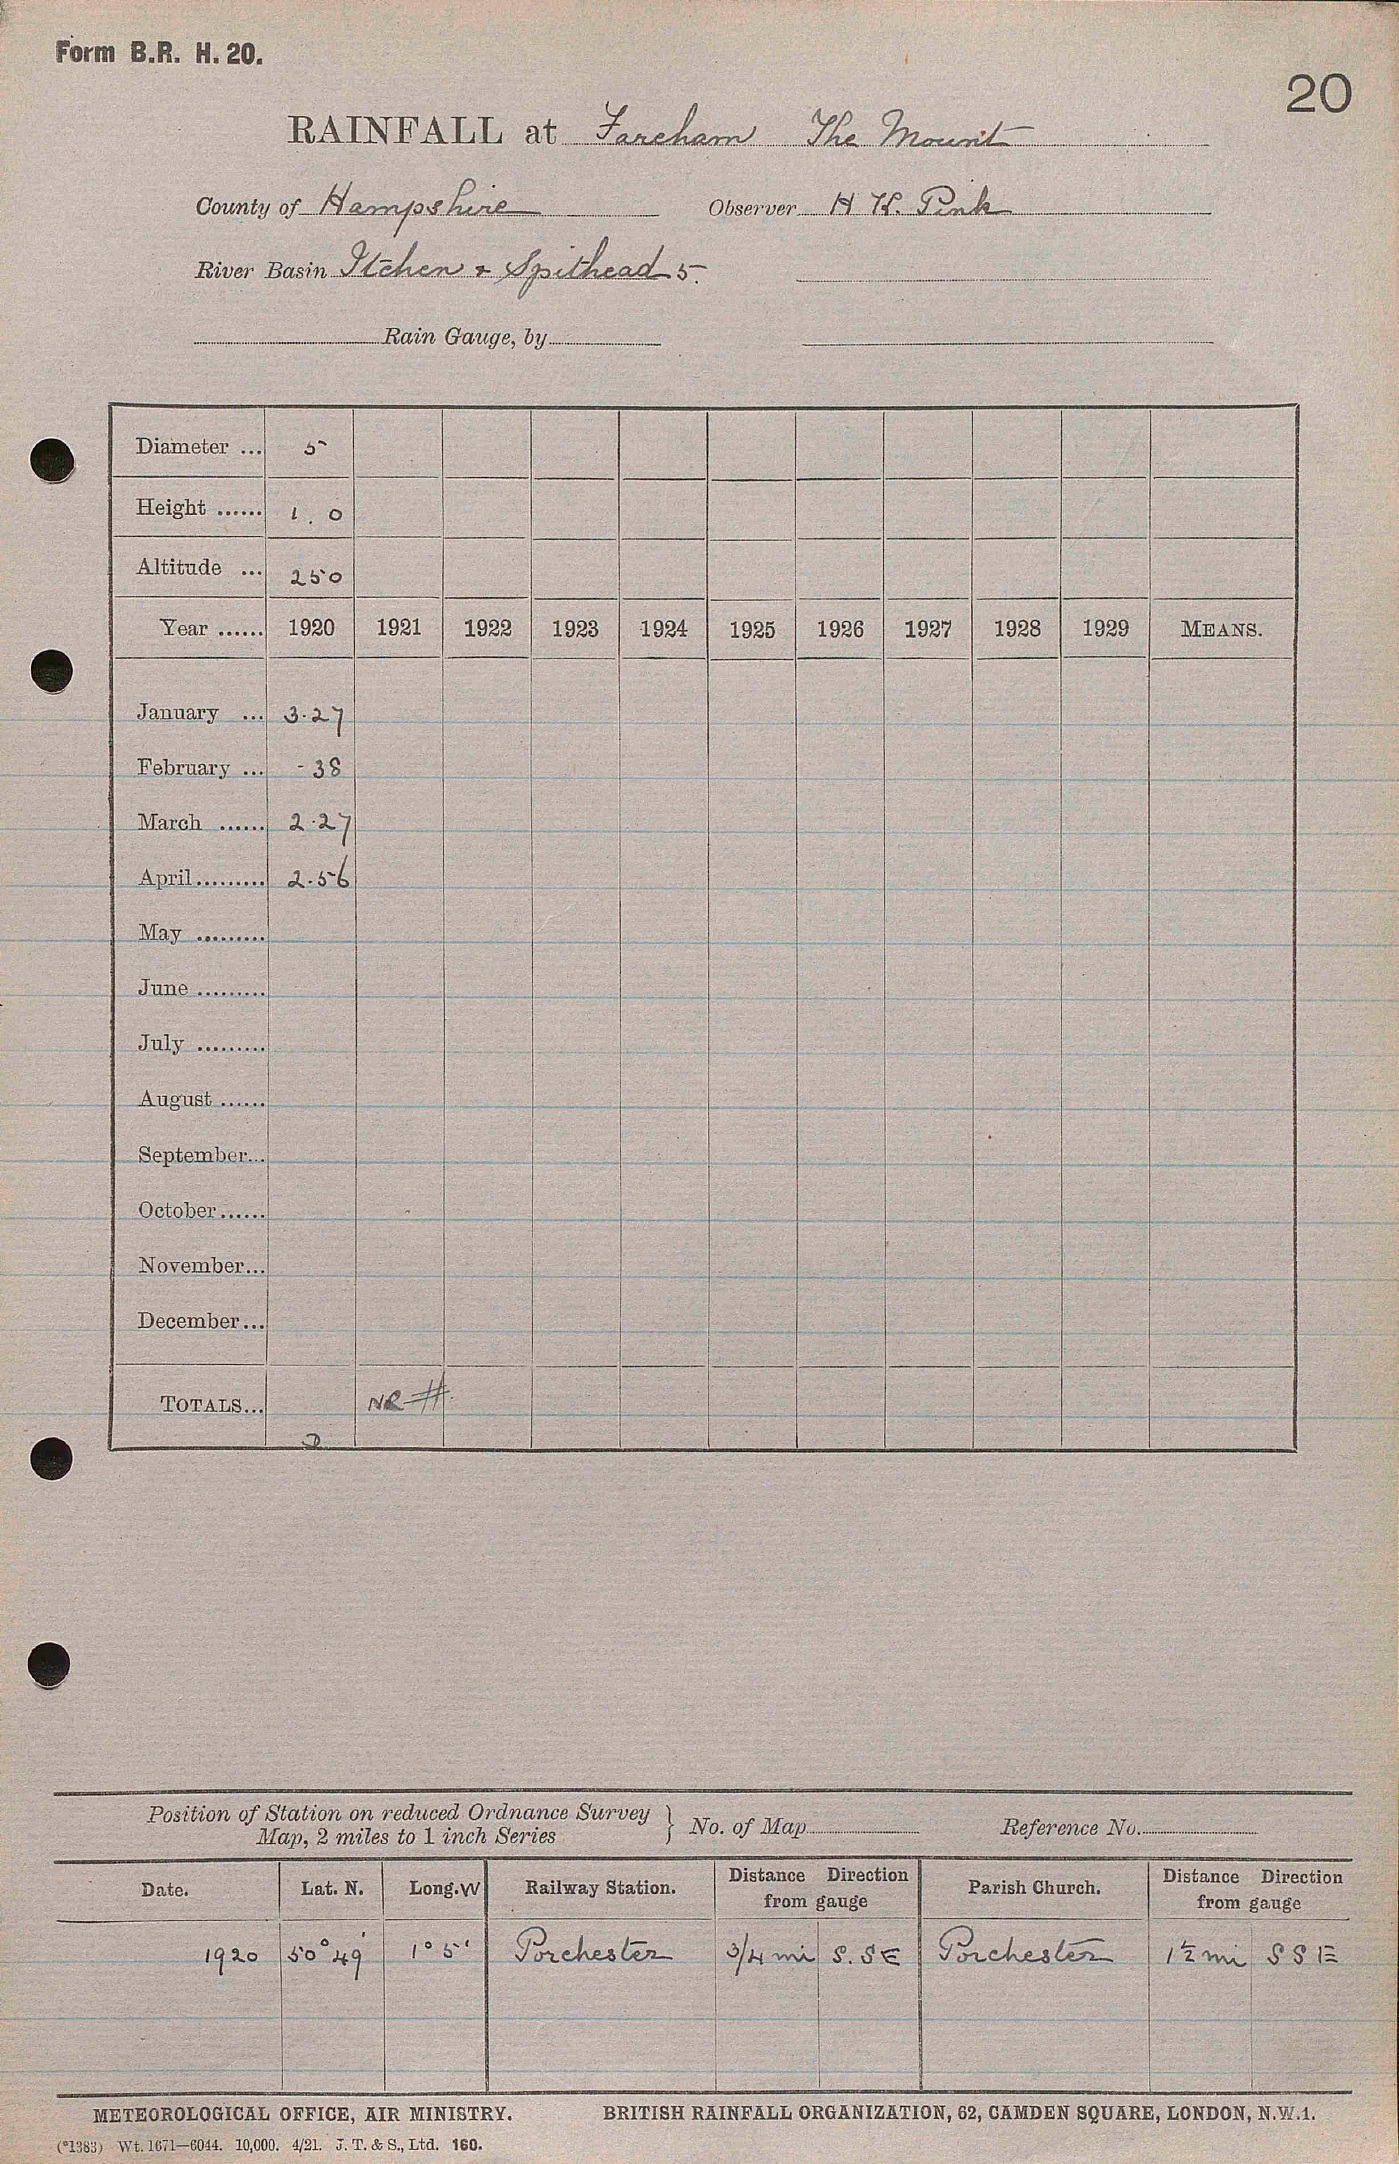 Form B.R. H. 20.
20
RAINFALL at Fareham The Mount
County of Hampshire Observer H K. Pink
River Basin Itchen & Spithead 5.
Rain Gauge, by
Diameter ... 5
Height ...... 1 . 0
Altitude ... 250
Year ...... 1920 1921 1922 1923 1924 1925 1926 1927 1928 1929 MEANS.
January ... 3.27
February ... .38
March ...... 2.27
April ......... 2.56
May .........
June .........
July .........
August ......
September...
October ......
November...
December...
TOTALS... NR #
Position of Station on reduced Ordnance Survey
Map, 2 miles to 1 inch Series } No. of Map Reference No.
Date. Lat. N. Long. W Railway Station. Distance Direction from gauge Parish Church. Distance Direction from gauge
1920 50° 49' 1° 5' Porchester 3/4 mi S. SE Porchester 1½ mi S S E
METEOROLOGICAL OFFICE, AIR MINISTRY. BRITISH RAINFALL ORGANIZATION, 62, CAMDEN SQUARE, LONDON, N.W.1.
(*1383) Wt. 1671—6044. 10,000. 4/21. J. T. & S., Ltd. 160.